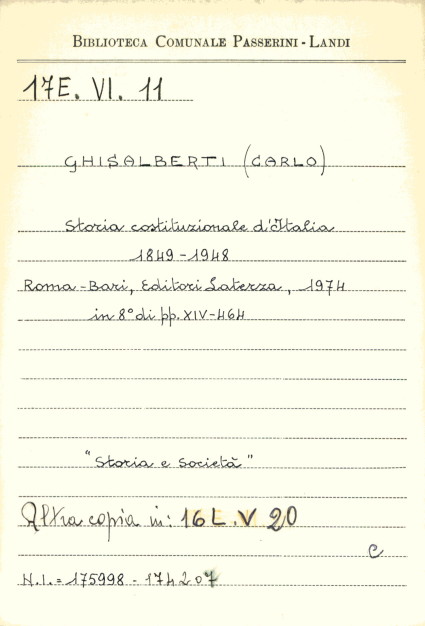 BIBLIOTECA COMUNALE PASSERINI - LANDI
17E. VI. 11
GHISALBERTI (CARLO)
Storia costituzionale d'Italia
1849 - 1948
Roma - Bari, Editori Laterza, 1974
in 8° di pp. XIV-464
"Storia e Società"
Altra copia in: 16 L. V 20
C
N.I. = 175998 - 174207